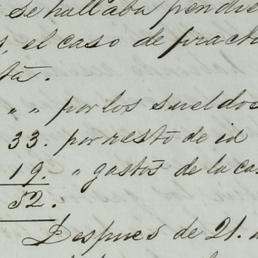 se hallaba pendie
s, el caso de pract
ta.
" " por los sueldos
33. por resto de id
19. " gastos de la ca
52.
Despues de 21. a